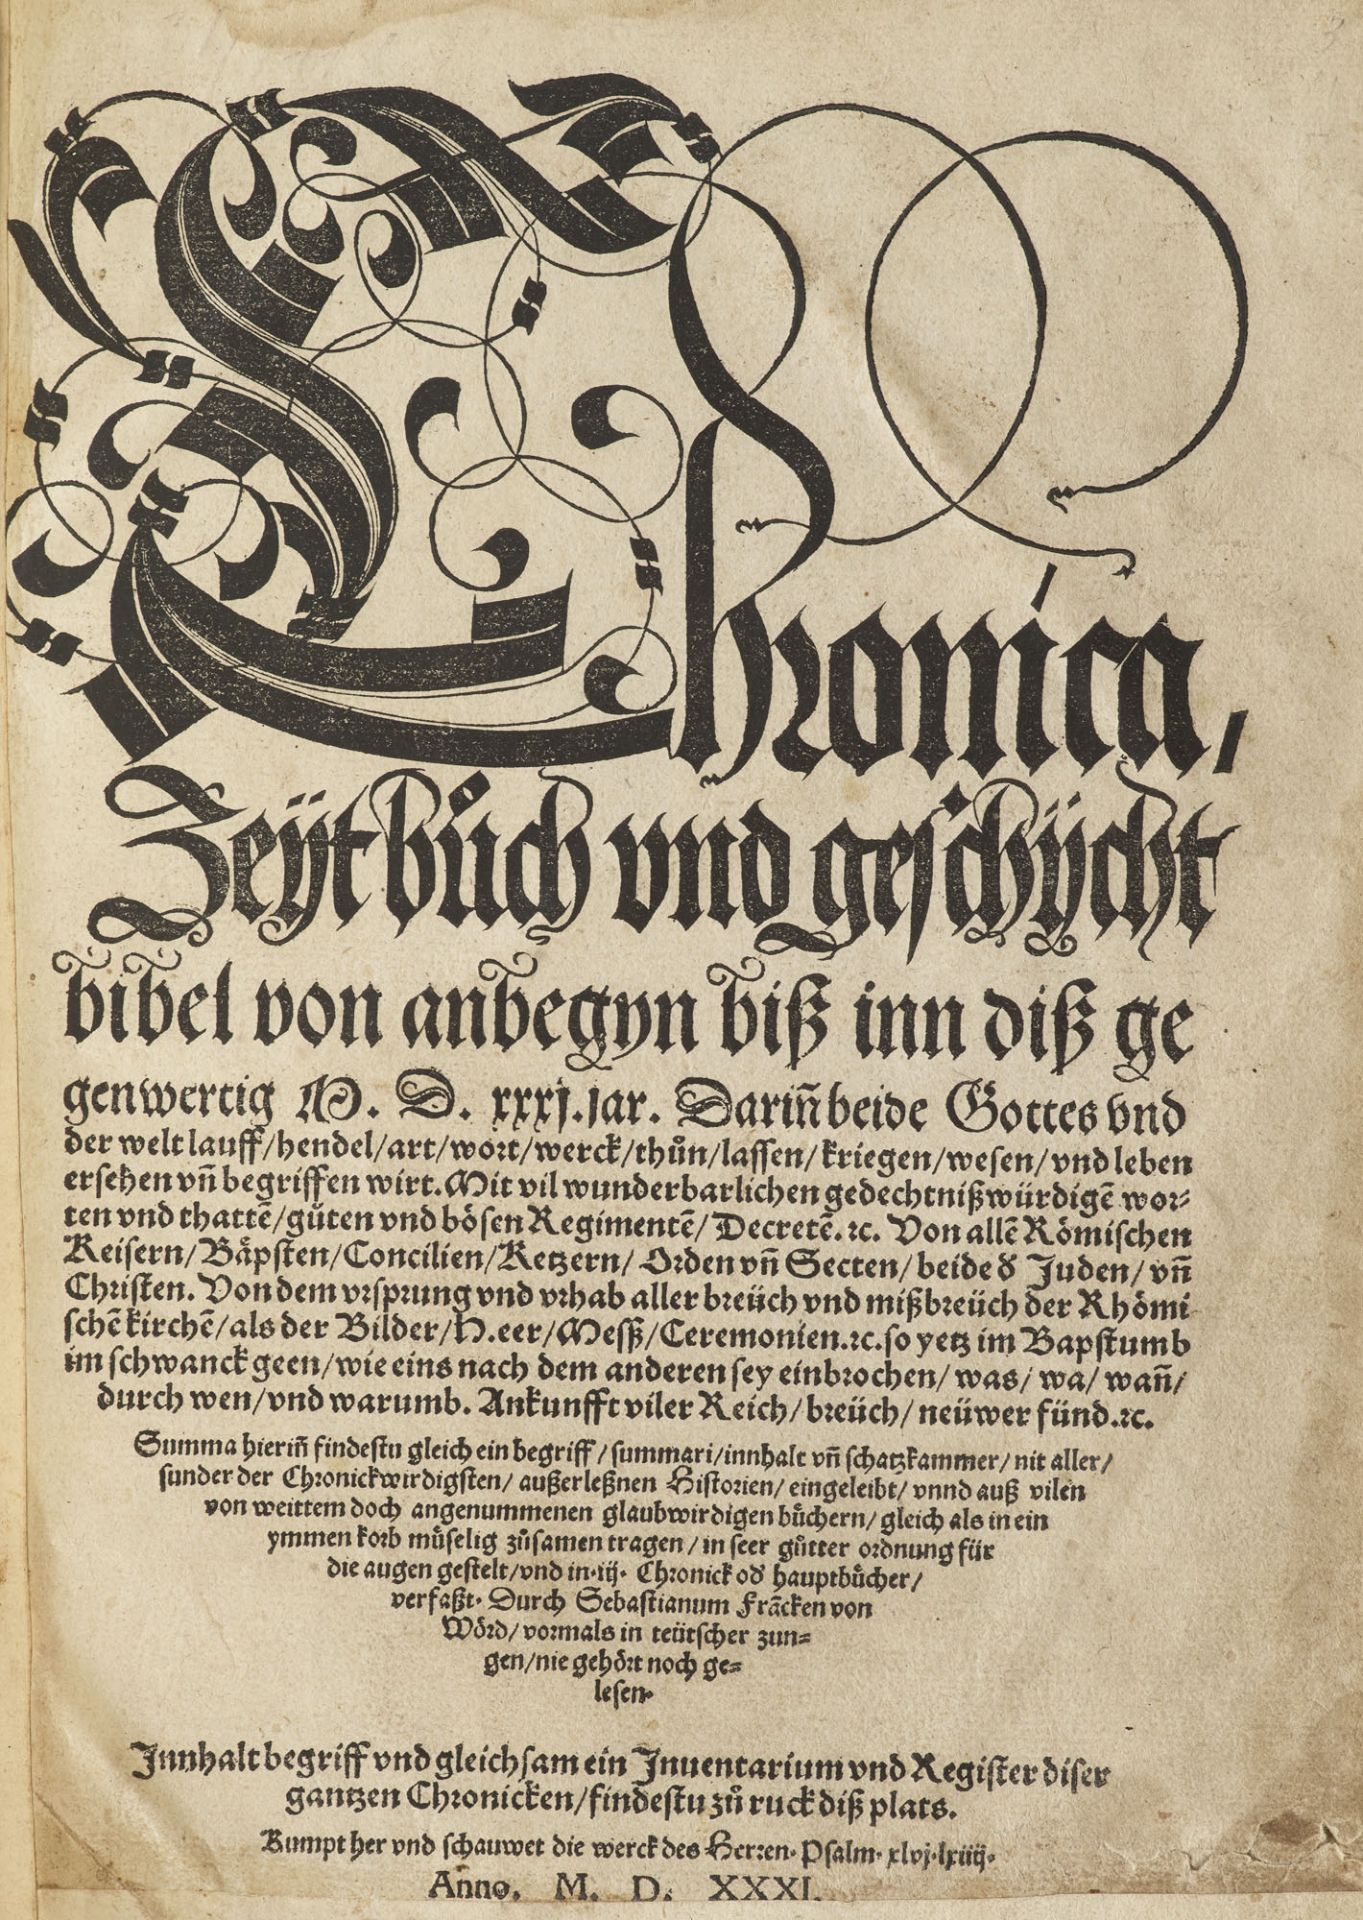 Chronica,
Zeÿtbůch vnd geschÿcht
bibel von anbegyn biß inn diß ge
genwertig M. D. xxxj.jar. Dariñ beide Gottes vnd
der welt lauff/hendel/art/wort/werck/thůn/lassen/kriegen/wesen/vnd leben
ersehen vñ begriffen wirt. Mit vil wunderbarlichen gedechtnißwürdigē wor⸗
ten vnd thattē/gůten vnd bösen Regimentē/Decretē.ꝛc. Von allē Römischen
Keisern/Bäpsten/Concilien/Ketzern/Orden vñ Secten/beide d̕ Juden/vñ
Christen. Von dem vrsprung vnd vrhab aller breüch vnd mißbreüch der Rhömi
schē kirchē/als der Bilder/H.eer/Messß/Ceremonien.ꝛc.so yetz im Bapstumb
im schwanck geen/wie eins nach dem anderen sey einbrochen/was/wa/wañ/
durch wen/vnd warumb. Ankunfft viler Reich/breüch/neüwer fünd.ꝛc.
Summa hieriñ findestu gleich ein begriff/summari/innhalt vñ schatzkammer/nit aller/
sunder der Chronickwirdigsten/außerleßnen Historien/eingeleibt/vnnd auß vilen
von weittem doch angenummenen glaubwirdigen bůchern/gleich als in ein
ymmen korb můselig zůsamen tragen/in seer gůtter ordnung für
die augen gestelt/vnd in.iij. Chronick od̕ hauptbůcher/
verfaßt. Durch Sebastianum Frācken von
Wörd/vormals in teütscher zun⸗
gen/nie gehört noch ge⸗
lesen.
Innhalt begriff vnd gleichsam ein Inuentarium vnd Register diser
gantzen Chronicken/findestu zů ruck diß plats.
Kumpt her vnd schauwet die werck des Herren. Psalm. xlvj.lxiiij.
Anno. M. D. XXXI.